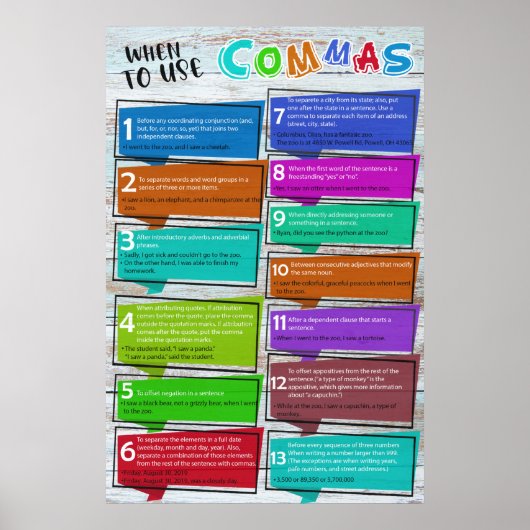 WHEN
TO USE
COMMAS
1
Before any coordinating conjunction (and,
but, for, or, nor, so, yet) that joins two
independent clauses.
• I went to the zoo, and I saw a cheetah.
2
To separate words and word groups in a
series of three or more items.
• I saw a lion, an elephant, and a chimpanzee at the
zoo.
3
After introductory adverbs and adverbial
phrases.
• Sadly, I got sick and couldn't go to the zoo.
• On the other hand, I was able to finish my
homework.
4
When attributing quotes. If attribution
comes before the quote, place the comma
outside the quotation marks. If attribution
comes after the quote, put the comma
inside the quotation marks.
• The student said, "I saw a panda."
• "I saw a panda," said the student.
5
To offset negation in a sentence
• I saw a black bear, not a grizzly bear, when I went
to the zoo.
6
To separate the elements in a full date
(weekday, month and day, year). Also,
separate a combination of those elements
from the rest of the sentence with commas.
• Friday, August 30, 2019
• Friday, August 30, 2019, was a cloudy day.
7
To separete a city from its state; also, put
one after the state in a sentence. Use a
comma to separate each item of an address
(street, city, state).
• Columbus, Ohio, has a fantastic zoo.
The zoo is at 4850 W. Powell Rd, Powell, OH 43065
8
When the first word of the sentence is a
freestanding "yes" or "no".
• Yes, I saw an otter when I went to the zoo.
9
When directly addressing someone or
something in a sentence.
• Ryan, did you see the python at the zoo?
10
Between consecutive adjectives that modify
the same noun.
• I saw the colorful, graceful peacocks when I went
to the zoo.
11
After a dependent clause that starts a
sentence.
• When I went to the zoo, I saw a tortoise.
12
To offset appositives from the rest of the
sentence. ("a type of monkey" is the
appositive, which gives more information
about "a capuchin.")
• While at the zoo, I saw a capuchin, a type of
monkey.
13
Before every sequence of three numbers
When writing a number larger than 999.
(The exceptions are when writing years,
pafe numbers, and street addresses.)
• 3,500 or 89,350 or 3,700,000